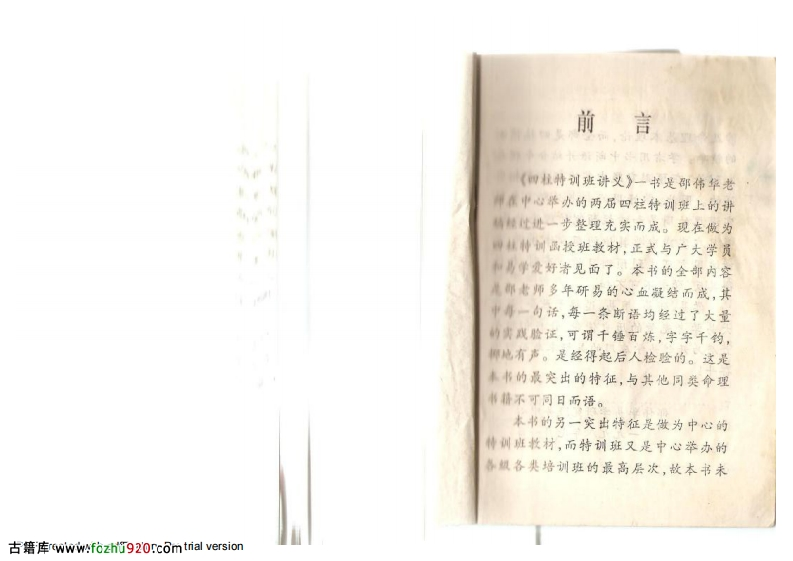 前 言
《四柱特训班讲义》一书是邵伟华老
师在中心举办的两届四柱特训班上的讲
稿经过进一步整理充实而成。现在做为
四柱特训函授班教材,正式与广大学员
和易学爱好者见面了。本书的全部内容
是邵老师多年研易的心血凝结而成,其
中每一句话,每一条断语均经过了大量
的实践验证,可谓千锤百炼,字字千钧,
掷地有声。是经得起后人检验的。这是
本书的最突出的特征,与其他同类命理
书籍不可同日而语。
本书的另一突出特征是做为中心的
特训班教材,而特训班又是中心举办的
各级各类培训班的最高层次,故本书未
古籍库 www.fozhu920.com trial version